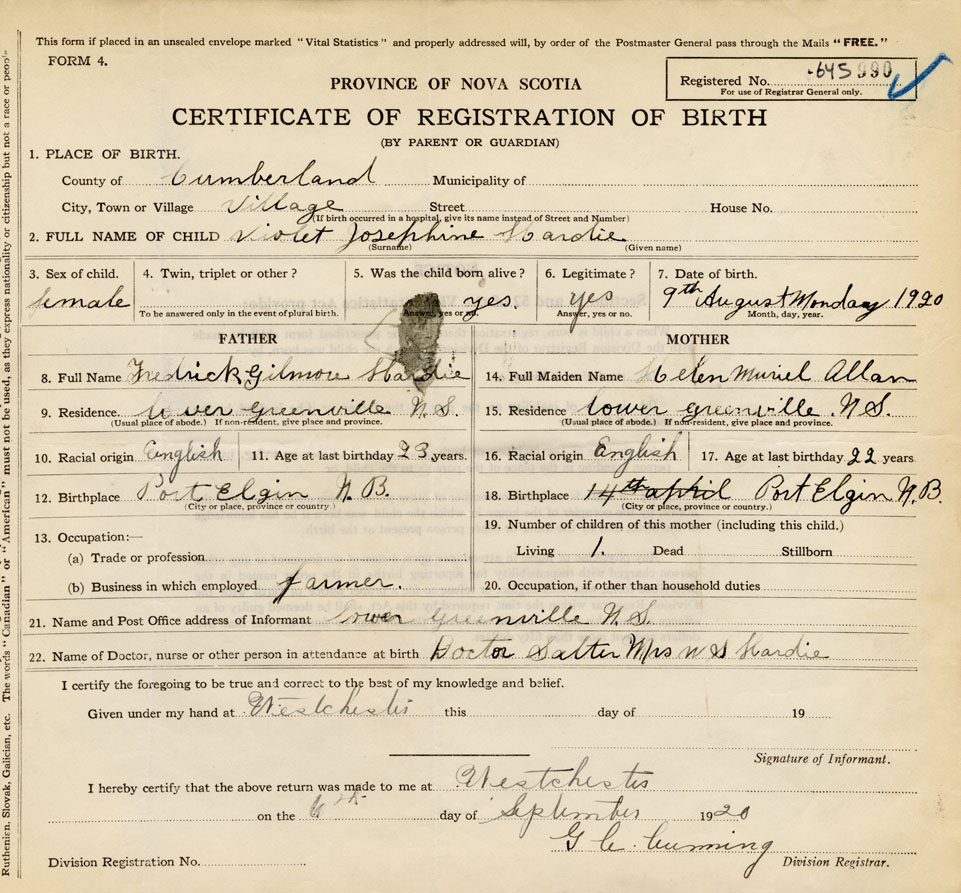 This form if placed in an unsealed envelope marked "Vital Statistics" and properly addressed will, by order of the Postmaster General pass through the Mails "FREE."
FORM 4.
PROVINCE OF NOVA SCOTIA
Registered No. 645990
For use of Registrar General only.
CERTIFICATE OF REGISTRATION OF BIRTH
(BY PARENT OR GUARDIAN)
1. PLACE OF BIRTH.
County of Cumberland Municipality of
City, Town or Village Village Street House No.
(If birth occurred in a hospital, give its name instead of Street and Number)
2. FULL NAME OF CHILD Violet Josephine Hardie
(Surname) (Given name)
3. Sex of child. 4. Twin, triplet or other? 5. Was the child born alive? 6. Legitimate? 7. Date of birth.
female yes. yes 9th August Monday 1920
To be answered only in the event of plural birth. Answer, yes or no. Answer, yes or no. Month, day, year.
FATHER MOTHER
8. Full Name Fredrick Gilmore Hardie 14. Full Maiden Name Helen Muriel Allan
9. Residence Lower Greenville N.S. 15. Residence Lower Greenville N.S.
(Usual place of abode.) If non-resident, give place and province. (Usual place of abode.) If non-resident, give place and province.
10. Racial origin English 11. Age at last birthday 23 years. 16. Racial origin English 17. Age at last birthday 22 years.
12. Birthplace Port Elgin N.B. 18. Birthplace 14th april Port Elgin N.B.
(City or place, province or country.) (City or place, province or country.)
13. Occupation:— 19. Number of children of this mother (including this child.)
(a) Trade or profession Living 1. Dead Stillborn
(b) Business in which employed farmer. 20. Occupation, if other than household duties
21. Name and Post Office address of Informant Lower Greenville N.S.
22. Name of Doctor, nurse or other person in attendance at birth Doctor Salter Mrs W S Hardie
I certify the foregoing to be true and correct to the best of my knowledge and belief.
Given under my hand at Westchester this day of 19
Signature of Informant.
I hereby certify that the above return was made to me at Westchester
on the 6th day of September 1920
G C Cumming
Division Registration No. Division Registrar.
Ruthenian, Slovak, Galician, etc. The words "Canadian" or "American" must not be used, as they express nationality or citizenship but not a race or